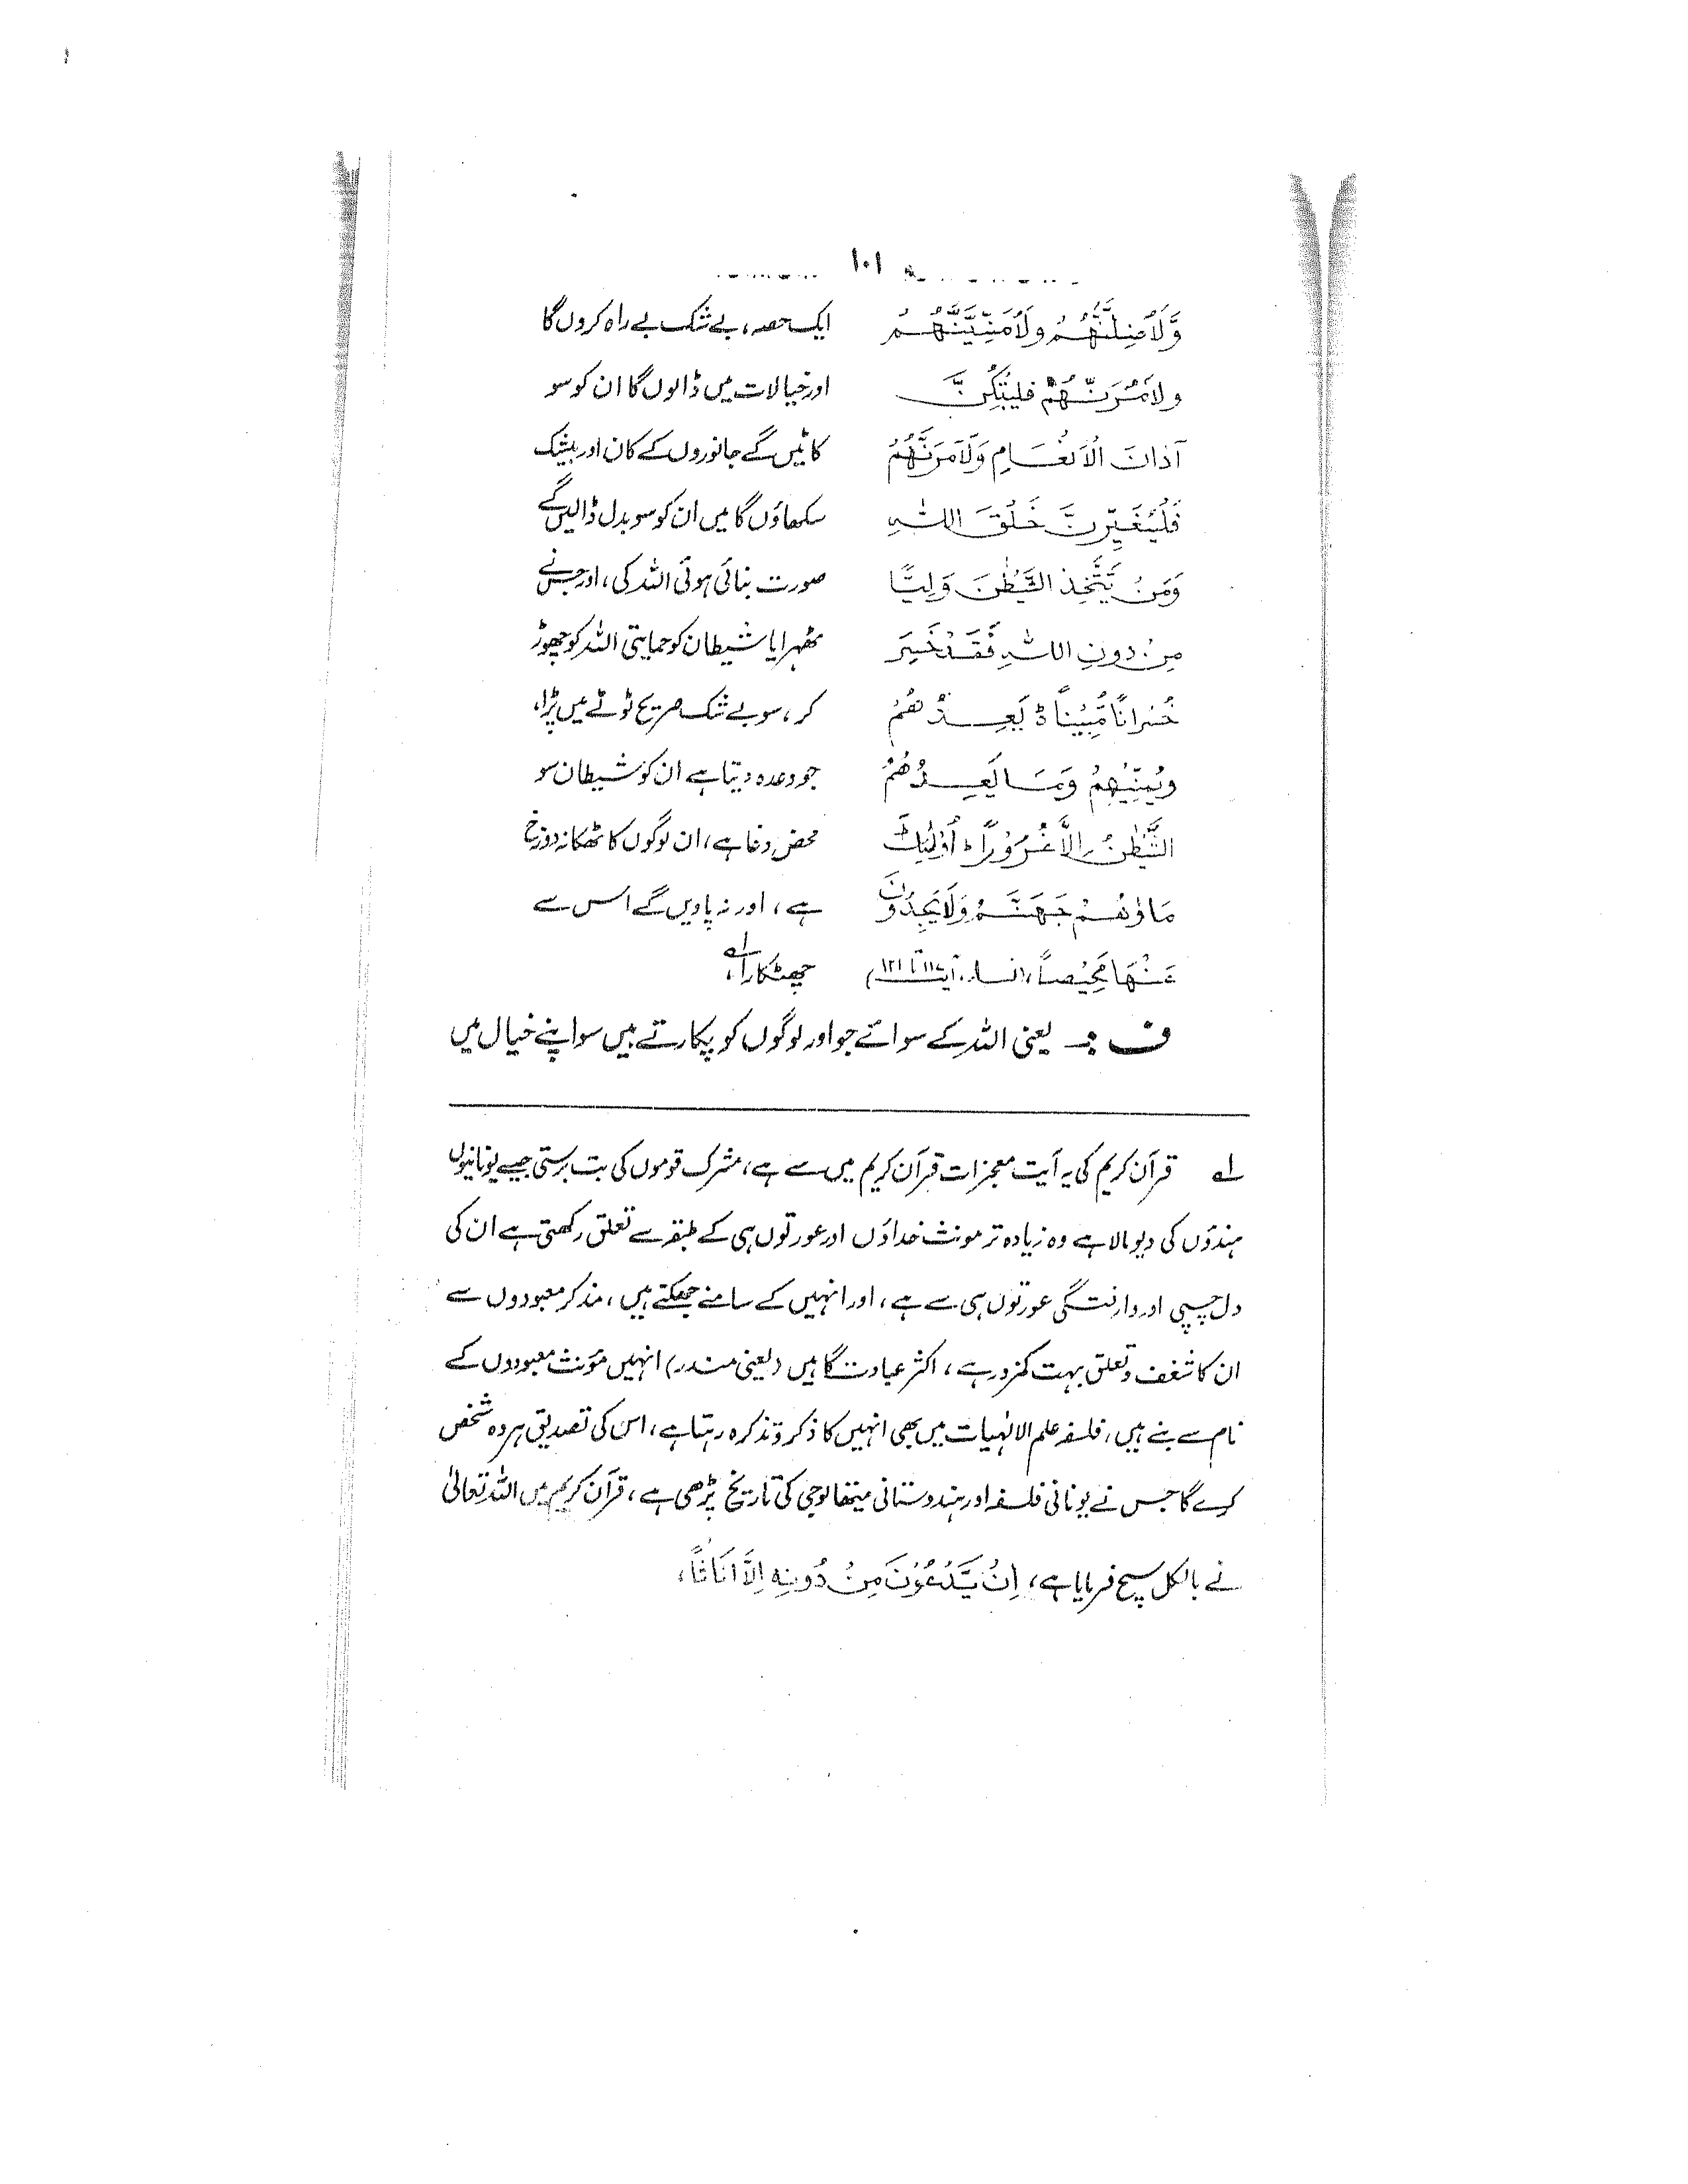 ۱۰۱
وَّلَاُضِلَّنَّهُمْ وَلَاُمَنِّيَنَّهُمْ ایک حصہ، بے شک بے راہ کروں گا
ولاٰمُرَنَّهُمْ فليبتِّكُنَّ اور خیالات میں ڈالوں گا ان کو سو
آذانَ الْاَنْعَامِ وَلَآمُرَنَّهُمْ کاٹیں گے جانوروں کے کان اور بیشک
فَلَيُغَيِّرُنَّ خَلْقَ اللہِ سکھاؤں گا میں ان کو سو بدل ڈالیں گے
وَمَنْ يَّتَّخِذِ الشَّيْطٰنَ وَلِيًّا صورت بنائی ہوئی اللہ کی، اور جس نے
مِنْ دونِ اللہِ فَقَدْ خَسِرَ ٹھہرایا شیطان کو حمایتی اللہ کو چھوڑ
خُسْرانًا مُّبِيْنًا ؕ يَعِدُهُمْ کر، سو بے شک صریح ٹوٹے میں پڑا،
ويُمَنِّيْهِمْ وَمَا يَعِدُهُمُ جو وعدہ دیتا ہے ان کو شیطان سو
الشَّيْطٰنُ اِلَّا غُرُوْرًا، اُولٰئِكَ محض دغا ہے، ان لوگوں کا ٹھکانہ دوزخ
مَاوٰهُمْ جَهَنَّمُ وَلَا يَجِدُوْنَ ہے، اور نہ پاویں گے اس سے
عَنْهَا مَحِيْصًا، (النساء. آیت ۱۱۷ تا ۱۲۱) چھٹکارا، ۱ے
ف :۔ یعنی اللہ کے سوائے جو اور لوگوں کو پکارتے ہیں سو اپنے خیال میں
۱ے قرآن کریم کی یہ آیت معجزات قرآن کریم میں سے ہے، مشرک قوموں کی بت پرستی جیسے یونانیوں
ہندؤں کی دیومالا ہے وہ زیادہ تر مونث خداؤں اور عورتوں ہی کے طبقہ سے تعلق رکھتی ہے ان کی
دل چسپی اور وارفتگی عورتوں ہی سے ہے، اور انہیں کے سامنے جھکتے ہیں، مذکر معبودوں سے
ان کا شغف و تعلق بہت کمزور ہے، اکثر عبادت گاہیں (یعنی مندر) انہیں مؤنث معبودوں کے
نام سے بنے ہیں، فلسفہ علم الالٰہیات میں بھی انہیں کا ذکر و تذکرہ رہتا ہے، اس کی تصدیق ہر وہ شخص
کرے گا جس نے یونانی فلسفہ اور ہندوستانی میتھالوجی کی تاریخ پڑھی ہے، قرآن کریم میں اللہ تعالیٰ
نے بالکل سچ فرمایا ہے، اِنْ يَّدْعُوْنَ مِنْ دُونِهٖ اِلَّا اِنَاثًا،